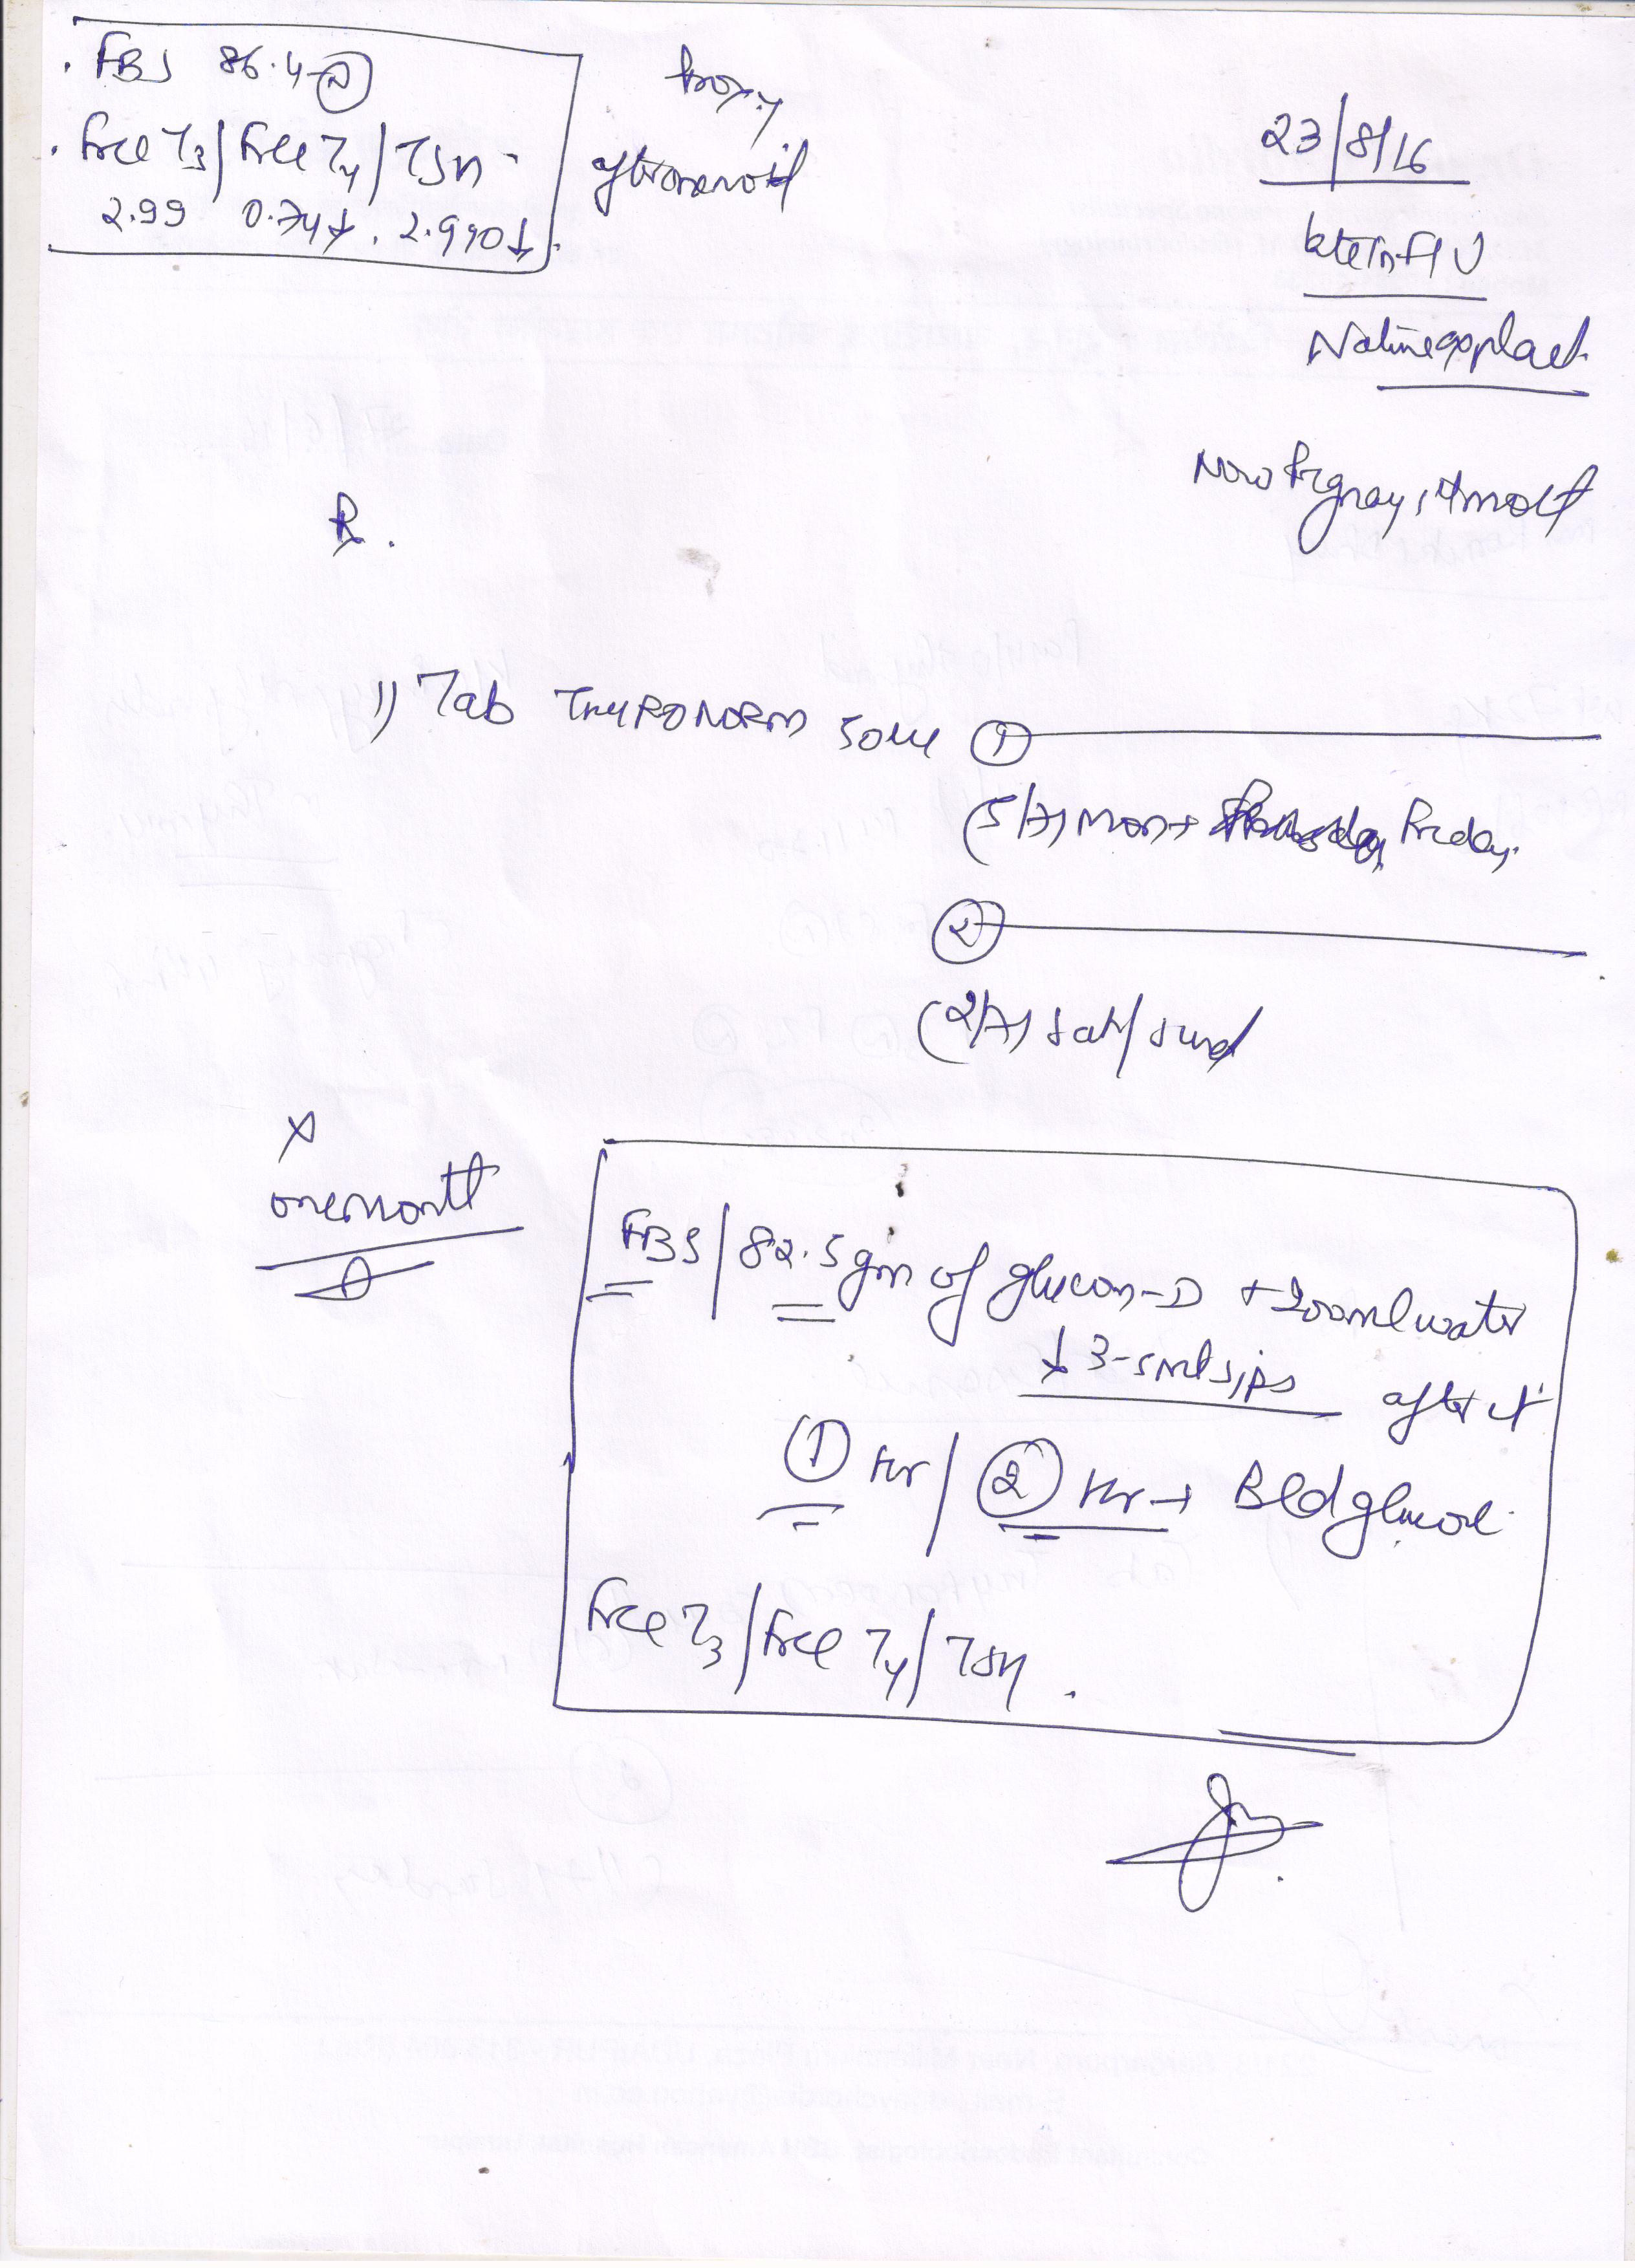 . FBS 86.4 (N)
. Free T3/Free T4/TSH
2.99 0.74↓ . 2.990↓
23/8/16
late in F/U
Now Pregnancy, 4 month
R.
1) Tab THYRONORM 50mcg (1)
(5/7) Mon → Friday.
(2)
(2/7) Sat/Sund
X
one month
FBS/82.5gm of glucon-D + 200ml water
↓ 3-5ml sips after it
(1) Hr/(2) Hr → Bld glucose.
Free T3/Free T4/TSH.